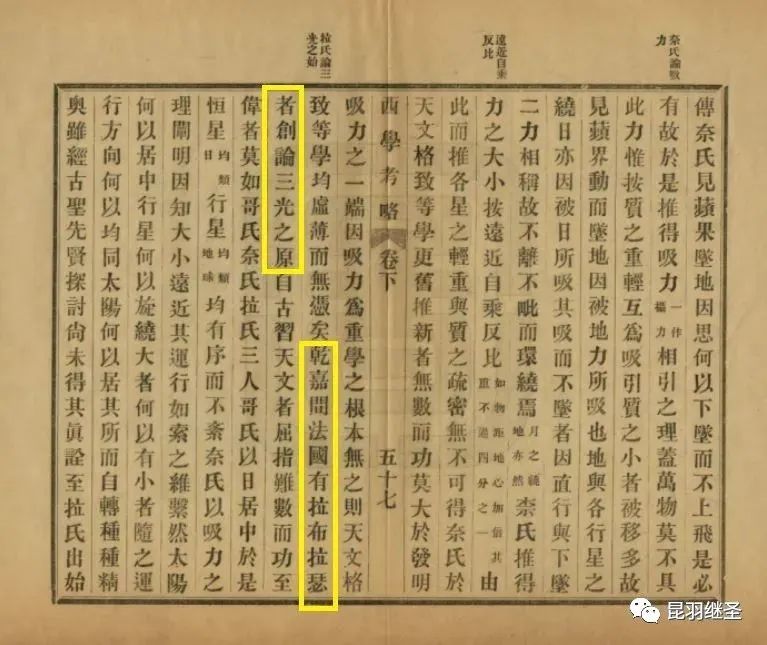 奈氏論攝力
傳奈氏見蘋果墜地因思何以下墜而不上飛是必
有故於是推得吸力一作攝力相引之理蓋萬物莫不具
此力惟按質之重輕互爲吸引質之小者被移多故
見蘋界動而墜地因被地力所吸也地與各行星之
繞日亦因被日所吸其吸而不墜者因直行與下墜
二力相稱故不離不毗而環繞焉月之繞地亦然柰氏推得
遠近自乘反比
力之大小按遠近自乘反比如物距地心加倍其重不過四分之一由
此而推各星之輕重與質之疏密無不可得奈氏於
天文格致等學更舊推新者無數而功莫大於發明
西學考略 卷下 五十七
吸力之一端因吸力爲重學之根本無之則天文格
拉氏論三光之始
致等學均虛薄而無憑矣乾嘉間法國有拉布拉瑟
者創論三光之原自古習天文者屈指難數而功至
偉者莫如哥氏奈氏拉氏三人哥氏以日居中於是
恒星均類日行星均類地球均有序而不紊奈氏以吸力之
理闡明因知大小遠近其運行如索之維繫然太陽
何以居中行星何以旋繞大者何以有小者隨之運
行方向何以均同太陽何以居其所而自轉種種精
奥雖經古聖先賢探討尙未得其眞詮至拉氏出始
昆羽继圣